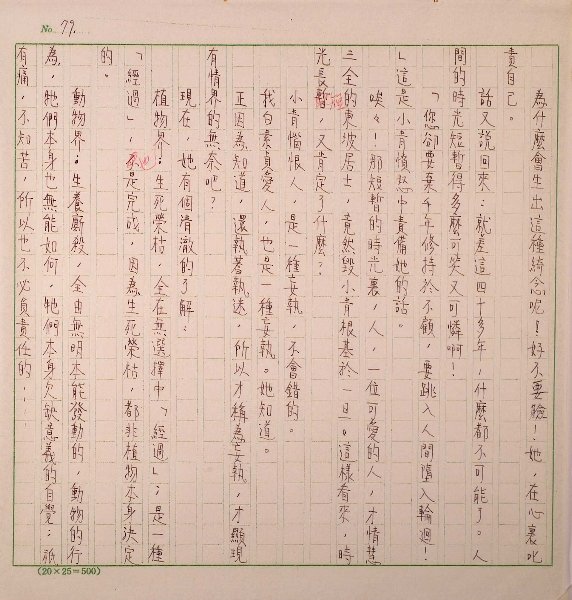 No. 79.
為什麼會生出這種綺念呢！好不要臉！她，在心裏叱
責自己。
話又說回來：就差這四十多年，什麼都不可能了。人
間的時光短暫得多麼可笑又可憐啊！
「您卻要棄千年修持於不顧，要跳入人間墮入輪迴！
」這是小青憤怒中責備她的話。
唉々！那短暫的時光裏，人，一位可愛的人，才情慧
三全的東坡居士，竟然毀小青根基於一旦。這樣看來，時
光長短，又肯定了什麼？
小青惱恨人，是一種妄執，不會錯的。
我白素貞愛人，也是一種妄執。她知道。
正因為知道，還執著執迷，所以才稱為妄執，才顯現
有情界的無奈吧？
現在，她有個清澈的了解：
植物界：生死榮枯，全在無選擇中「經過」；是一種
「經過」，不是完成，因為生死榮枯，都非植物本身決定
的。
動物界：生養廝殺，全由無明本能發動的，動物的行
為，牠們本身也無能如何，牠們本身欠缺意義的自覺；祇
有痛，不知苦，所以也不必負責任的……
(20×25=500)